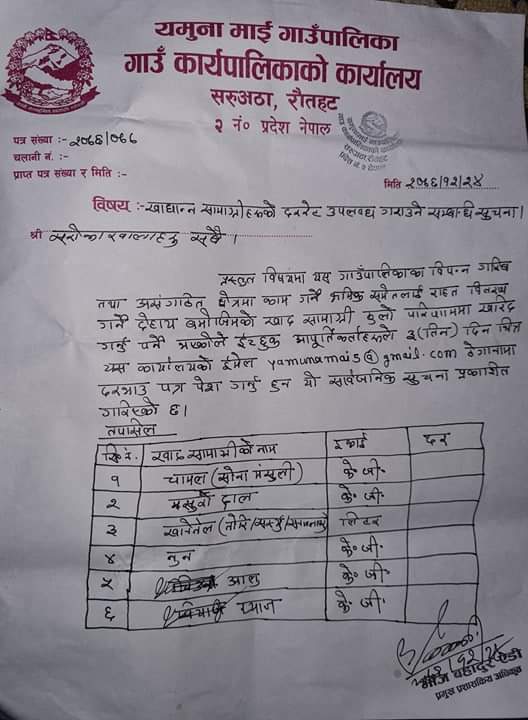 यमुना माई गाउँपालिका
गाउँ कार्यपालिकाको कार्यालय
सरुअठा, रौतहट
२ नं० प्रदेश नेपाल
पत्र संख्या :- २०७६/०७७
चलानी नं. :-
प्राप्त पत्र संख्या र मिति :-
मिति २०७६/१२/२४
विषय :- खाद्यान्न सामाग्रीहरुको दररेट उपलब्ध गराउने सम्बन्धि सूचना।
श्री सरोकारवालाहरु सबै।
प्रस्तुत विषयमा यस गाउँपालिकाका विपन्न गरिब
तथा असंगठित क्षेत्रमा काम गर्ने श्रमिक समेतलाई राहत वितरण
गर्ने देहाय बमोजिमको खाद्य सामाग्री ठुलो परिमाणमा खरिद
गर्नु पर्ने भएकोले ईच्छुक आपूर्तिकर्ताहरुले ३(तिन) दिन भित्र
यस कार्यालयको ईमेल yamunamai5@gmail.com ठेगानामा
दरभाउ पत्र पेश गर्नु हुन यो सार्वजनिक सूचना प्रकाशित
गरिएको छ।
तपसिल
सि.नं. खाद्य सामाग्रीको नाम इकाई दर
१ चामल (सोना मंसुली) के.जी.
२ मसुरो दाल के.जी.
३ खानेतेल (तोरि/सस्र्यु/) लिटर
४ नुन के.जी.
५ आलु के.जी.
६ प्याज के.जी.
भोज बहादुर ऐडी
प्रमुख प्रशासकिय अधिकृत